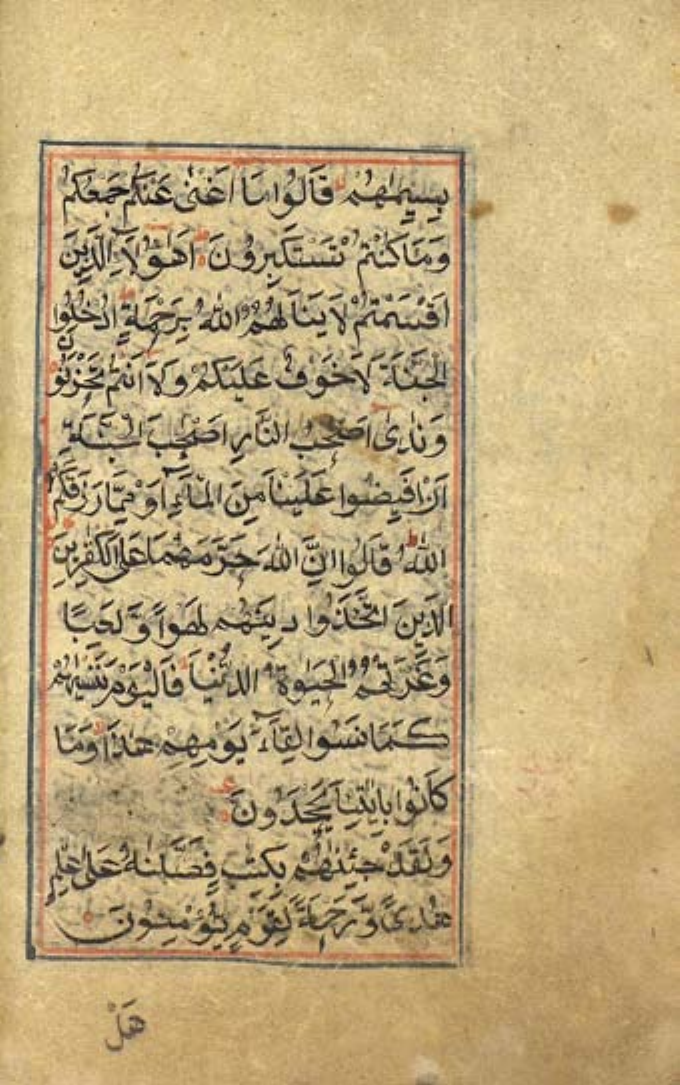 بِسِيمٰهُمْ قَالُوا مَا اَغْنٰى عَنْكُمْ جَمْعُكُمْ
وَمَا كُنْتُمْ تَسْتَكْبِرُونَ اَهٰٓؤُلَآءِ الَّذِينَ
اَقْسَمْتُمْ لَا يَنَالُهُمُ اللّٰهُ بِرَحْمَةٍ اُدْخُلُوا
الْجَنَّةَ لَا خَوْفٌ عَلَيْكُمْ وَلَآ اَنْتُمْ تَحْزَنُونَ
وَنَادٰى اَصْحٰبُ النَّارِ اَصْحٰبَ الْجَنَّةِ
اَنْ اَفِيضُوا عَلَيْنَا مِنَ الْمَآءِ اَوْ مِمَّا رَزَقَكُمُ
اللّٰهُ قَالُوا اِنَّ اللّٰهَ حَرَّمَهُمَا عَلَى الْكٰفِرِينَ
الَّذِينَ اتَّخَذُوا دِينَهُمْ لَهْوًا وَّ لَعِبًا
وَغَرَّتْهُمُ الْحَيٰوةُ الدُّنْيَا فَالْيَوْمَ نَنْسٰيهُمْ
كَمَا نَسُوا لِقَآءَ يَوْمِهِمْ هٰذَا وَمَا
كَانُوا بِاٰيٰتِنَا يَجْحَدُونَ
وَلَقَدْ جِئْنٰهُمْ بِكِتٰبٍ فَصَّلْنٰهُ عَلٰى عِلْمٍ
هُدًى وَّ رَحْمَةً لِّقَوْمٍ يُؤْمِنُونَ
هَلْ